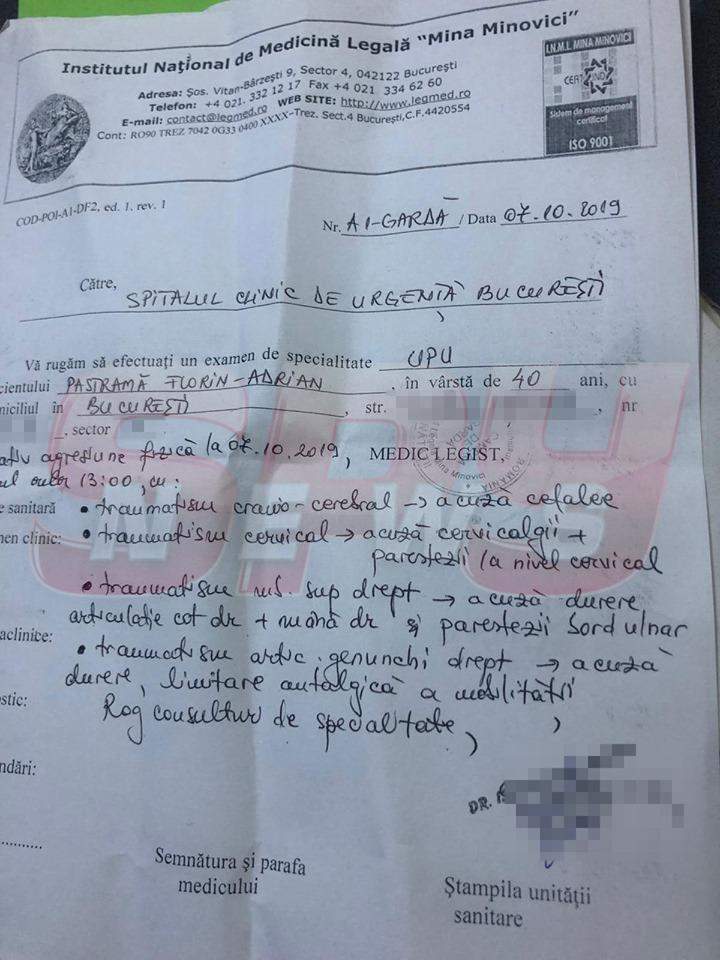 Institutul Naţional de Medicină Legală "Mina Minovici"
Adresa: Şos. Vitan-Bârzeşti 9, Sector 4, 042122 Bucureşti
Telefon: +4 021. 332 12 17 Fax +4 021 334 62 60
E-mail: contact@legmed.ro WEB SITE: http://www.legmed.ro
Cont: RO90 TREZ 7042 0G33 0400 XXXX-Trez. Sect.4 Bucureşti,C.F.4420554
I.N.M.L MINA MINOVICI
CERT IND
Sistem de management certificat
ISO 9001
COD-POI-A1-DF2, ed. 1. rev. 1
Nr. A1-GARDĂ / Data 07.10.2019
Către,
SPITALUL CLINIC DE URGENŢĂ BUCUREŞTI
Vă rugăm să efectuaţi un examen de specialitate UPU
cientului PASTRAMĂ FLORIN-ADRIAN, în vârstă de 40 ani, cu
miciliul în BUCUREŞTI, str. , nr
, sector
ativ agresiune fizică la 07.10.2019, MEDIC LEGIST,
ul orelor 13:00, cu:
e sanitară • traumatism cranio-cerebral → acuză cefalee
men clinic: • traumatism cervical → acuză cervicalgii +
parestezii la nivel cervical
• traumatism ms. sup drept → acuză durere
articulaţie cot dr + mână dr şi parestezii bord ulnar
aclinice: • traumatism artic. genunchi drept → acuză
durere, limitare antalgică a mobilităţii
ostic:
Rog consultur de specialitate,
ndări:
DR.
Semnătura şi parafa
medicului
Ştampila unităţii
sanitare
SPY
NEWS